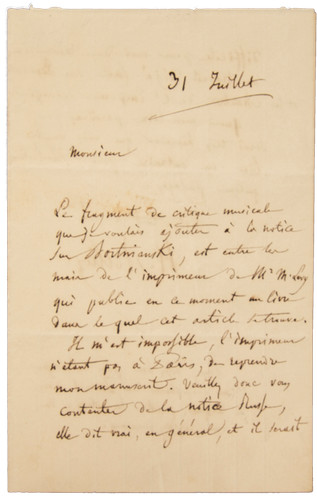 31 Juillet
Monsieur
Le fragment de critique musicale
que je voulais ajouter à la notice
sur Bortnianski, est entre les
main de l'imprimeur de Mr M. Levy
qui publie en ce moment un livre
dans le quel cet article se trouve.
Il m'est impossible, l'imprimeur
n'étant pas à Paris, de reprendre
mon manuscrit. Veuillez donc vous
contenter de la notice Russe,
elle dit vrai, en général, et il serait